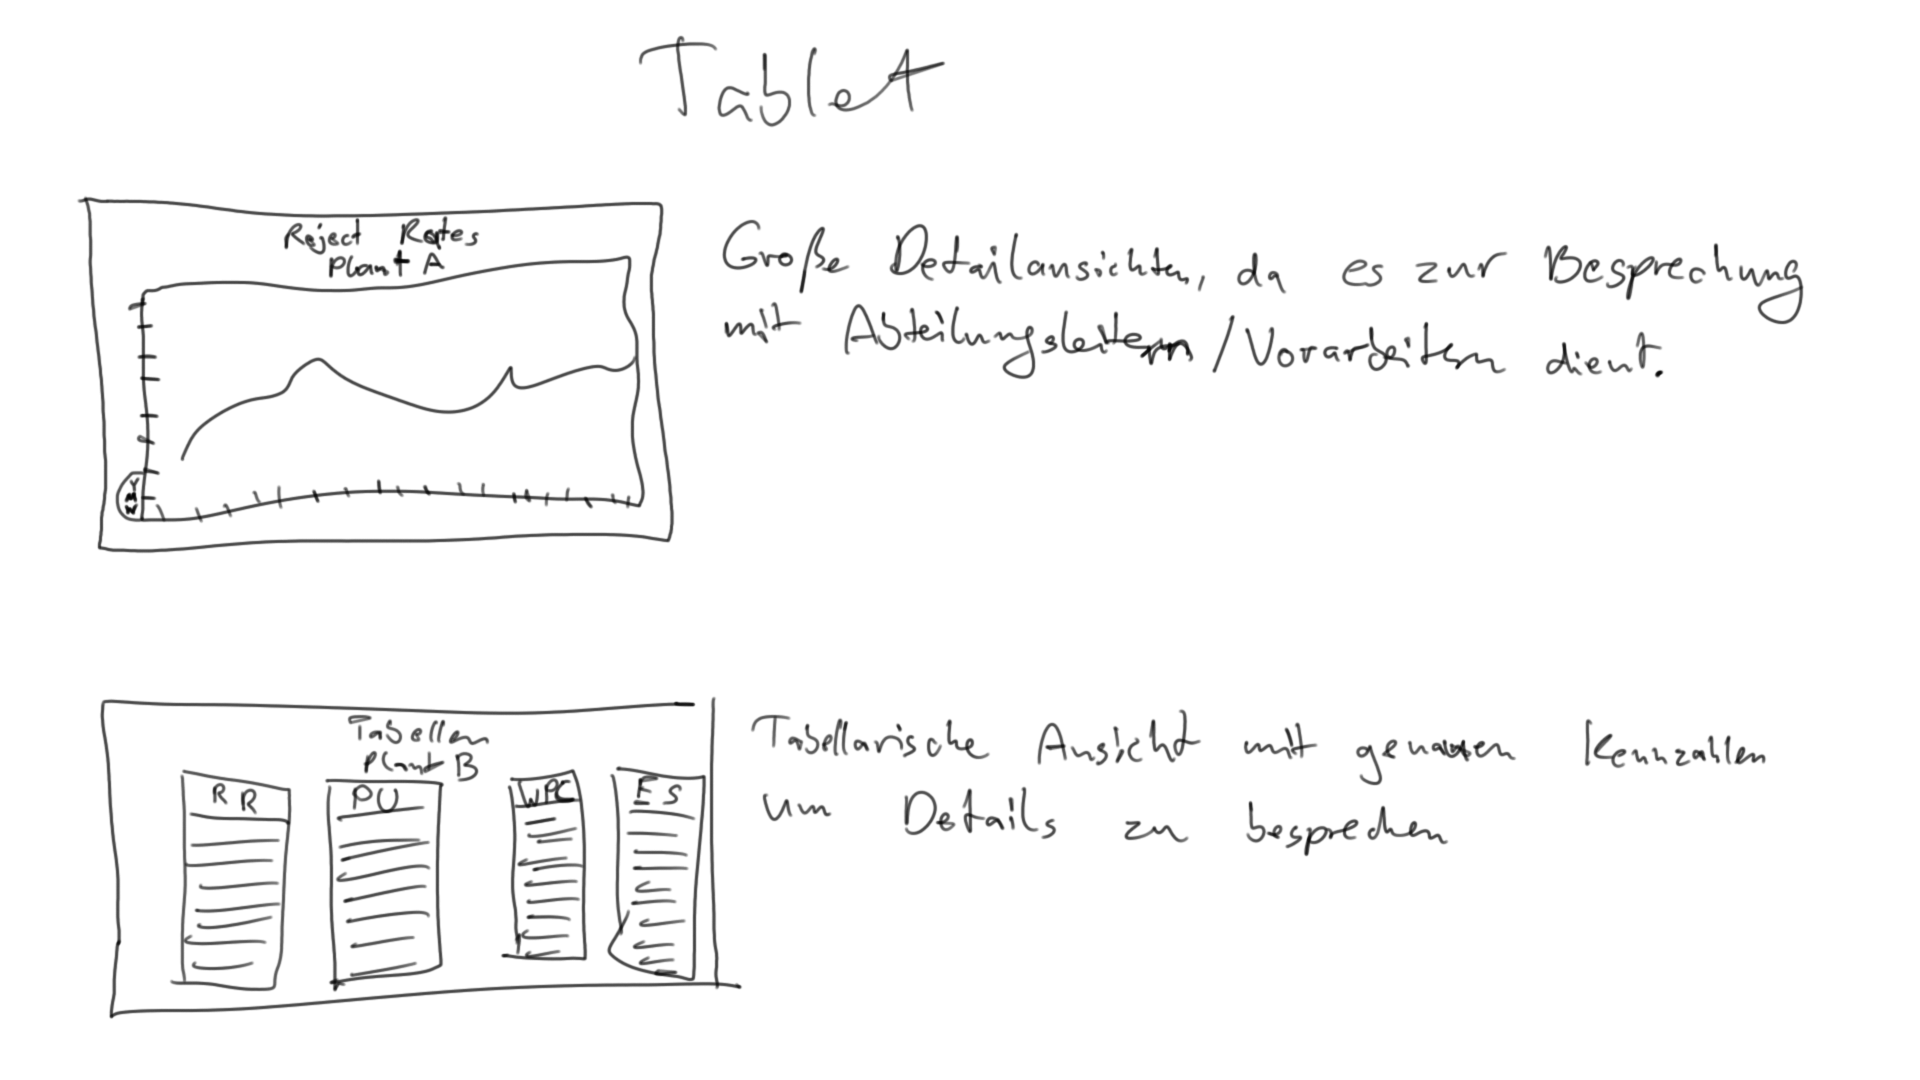 Tablet
Reject Rates
Plant A
Y
M
W
Große Detailansichten, da es zur Besprechung
mit Abteilungsleitern/Vorarbeitern dient.
Tabellen
Plant B
RR
PU
WPC
ES
Tabellarische Ansicht mit genauen Kennzahlen
um Details zu besprechen